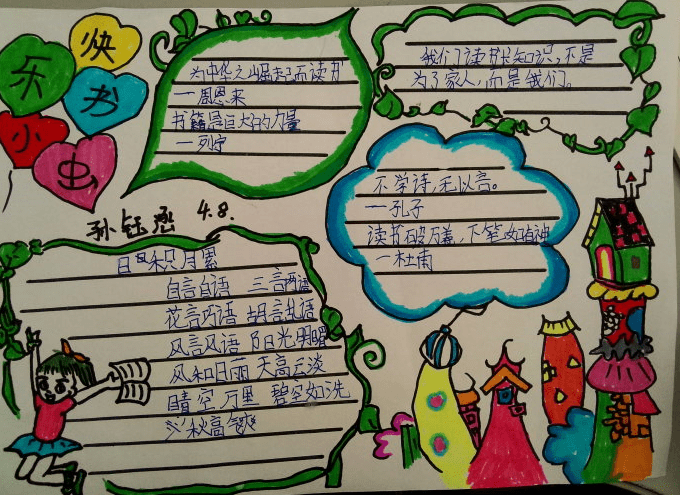 快
乐 书
小 虫
为中华之崛起而读书
一周恩来
书籍是巨大的力量
一列宁
我们读书长知识,不是
为了家人,而是我们。
不学诗,无以言。
一孔子
读书破万,下笔如有神
一杜甫
孙钰 4.8.
日积月累
自言自语 三言两语
花言巧语 胡言乱语
风言风语 阳光明媚
风和日丽 天高云淡
晴空万里 碧空如洗
秋高气爽